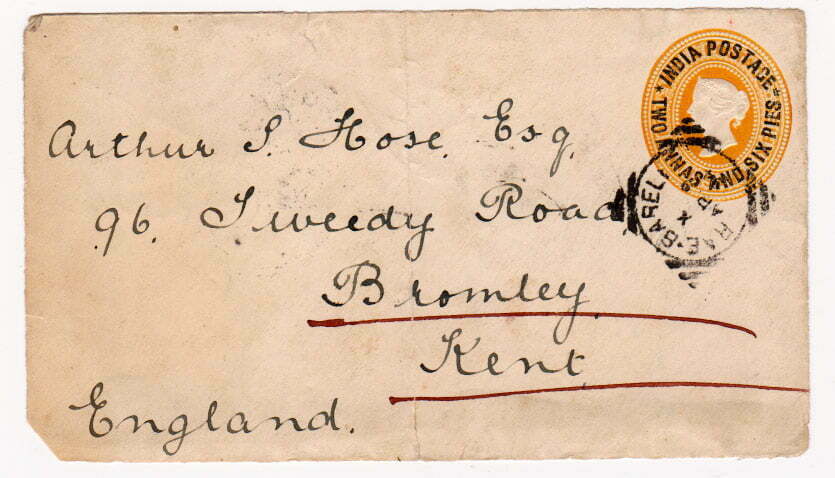 INDIA POSTAGE
TWO ANNAS AND SIX PIES
RAE-BARELI
AP
Arthur S. Hose. Esq.
96. Tweedy Road
Bromley
Kent
England.